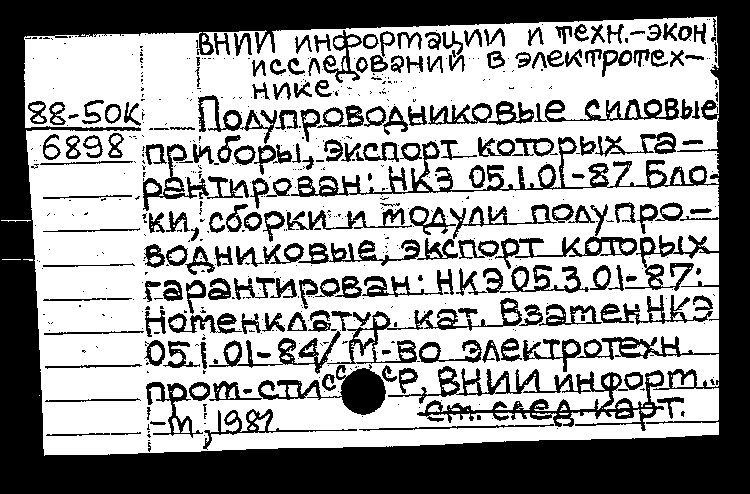 ВНИИ информации и техн.-экон.
исследований в электротех-
нике.
88-50К Полупроводниковые силовые
6898 приборы, экспорт которых га-
рантирован: НКЭ 05.1.01-87. Бло-
ки, сборки и модули полупро-
водниковые, экспорт которых
гарантирован: НКЭ 05.3.01-87:
Номенклатур. кат. Взамен НКЭ
05.1.01-84/ М-во электротехн.
пром-сти СССР, ВНИИ информ...
-М., 1987.
см. след. карт.